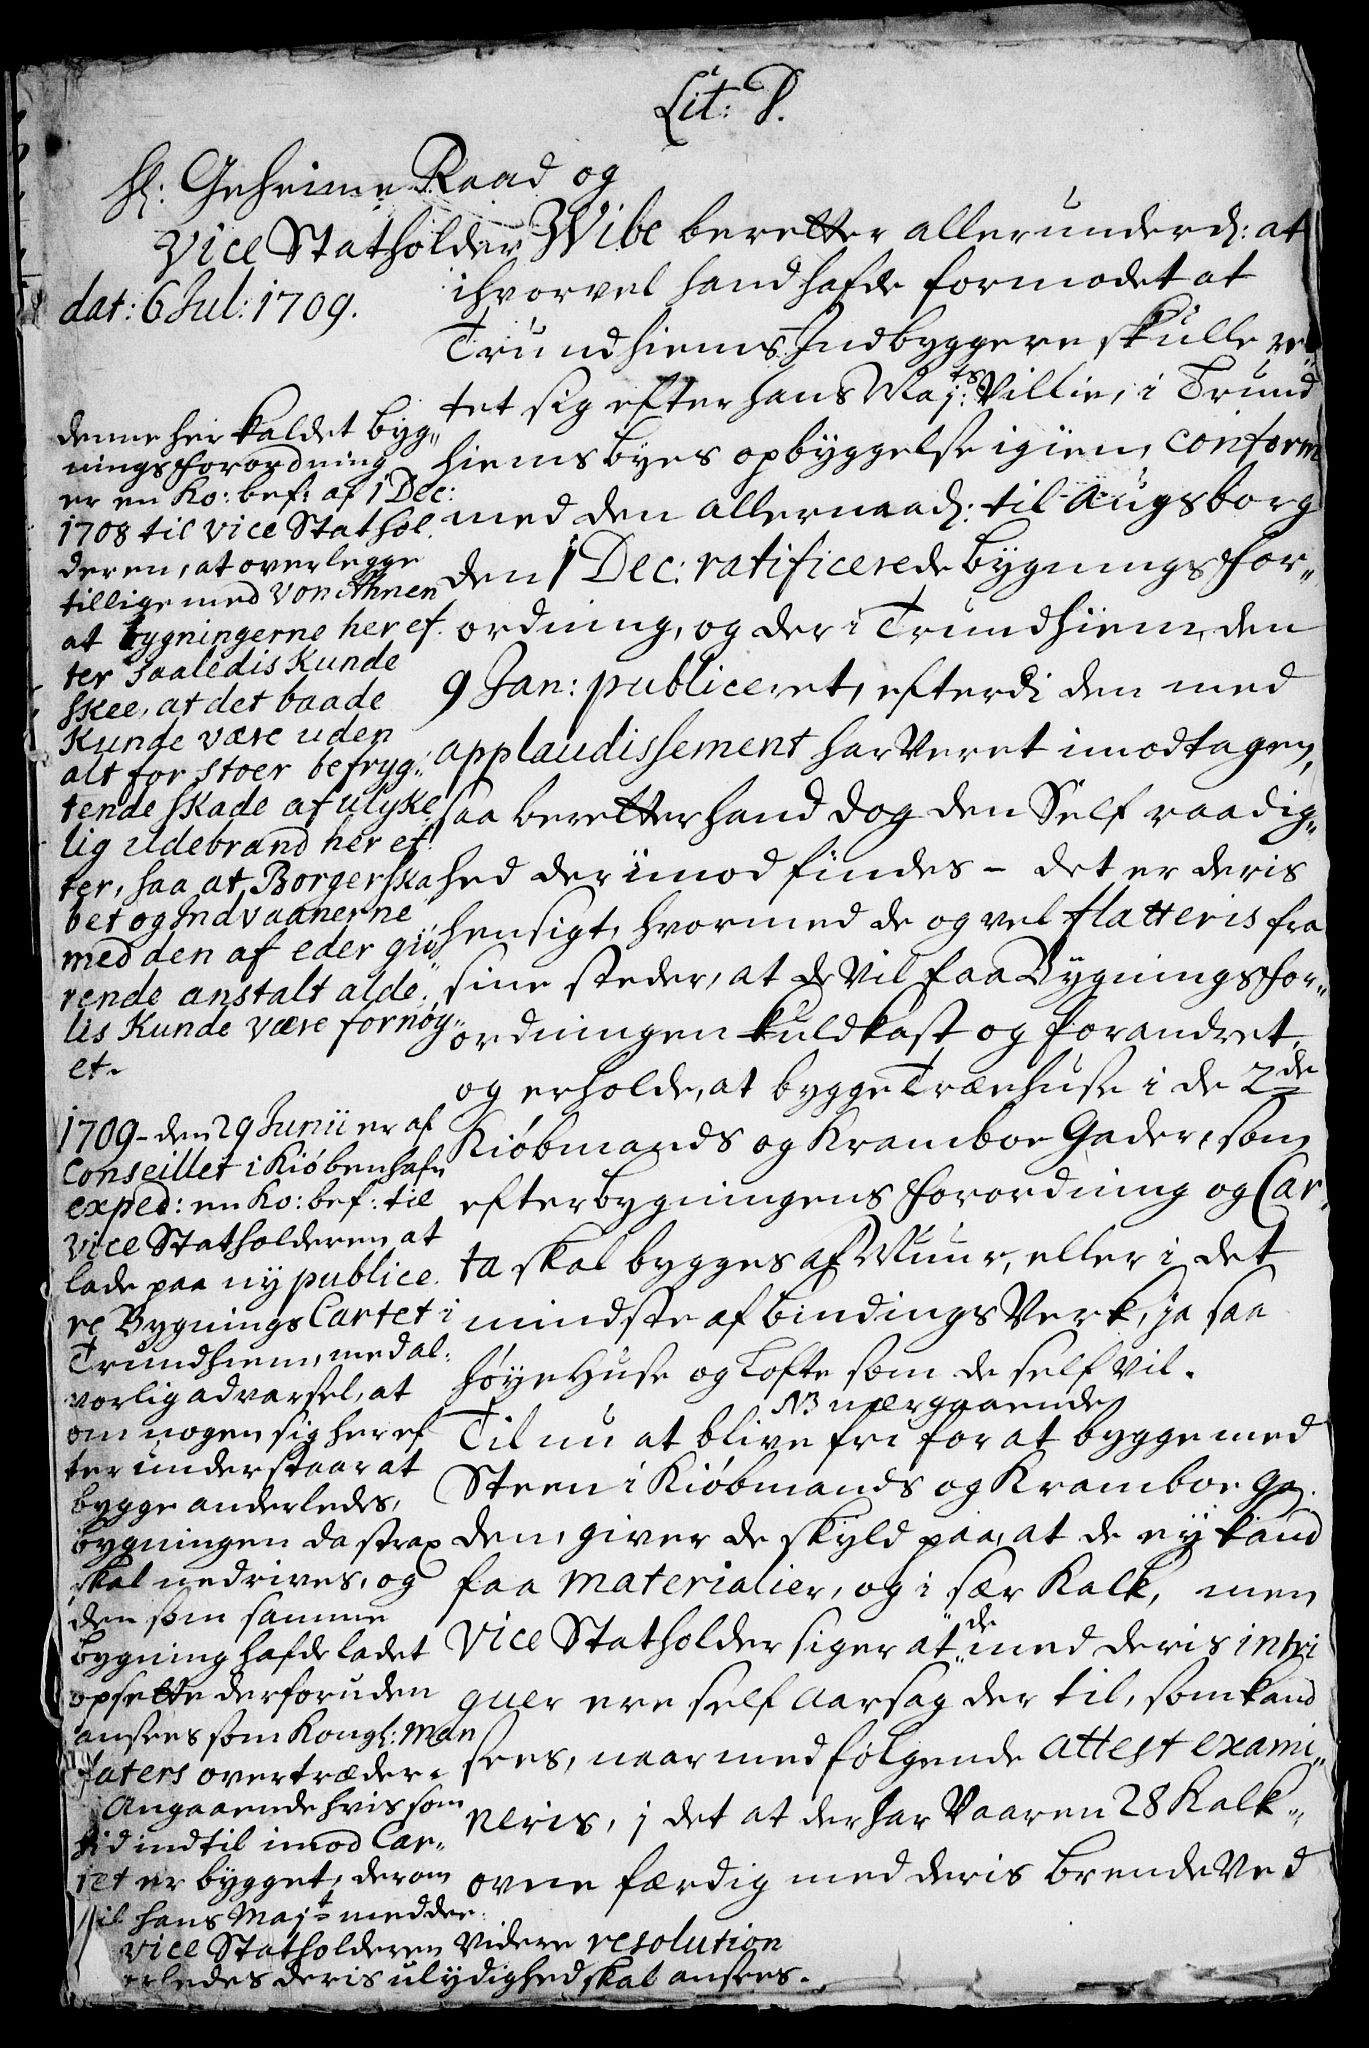 Lit: P.
Hl: Geheime Raad og
Vice Statholder Wibe beretter allerunderd: at
dat: 6 Jul: 1709.
ihvorvel hand hafde formodet at
Trundhiems Indbyggere skulle ret„
tet sig efter hans Maj:ts Villie, i Trund
hiems byes opbyggelse igien, conform
med den allernaad: til Augsborg
den 1 Dec: ratificerede bygnings for„
ordning, og der i Trundhiem, den
9 Jan: publiceret, efterdi den med
applaudissement har veret imodtagen,
saa beretter hand dog den Self raadig„
hed der imod findes - det er deris
hensigt, hvormed de og vel flatteris fra
sine steder, at de vil faa Bygnings for„
ordningen kuldkast og forandret,
og erholde, at bygge Træehuse i de 2de
Kiøbmands og Kramboe Gader, som
efter bygningens forordning og Car„
ta skal bygges af Muur, eller i det
mindste af bindings Verk, ja saa
høye Huse og Lofte som de self vil.
NB nærgaaende
Til nu at blive fri for at bygge med
Steen i Kiøbmands og Kramboe ga„
den, giver de skyld paa, at de ey kand
faa materialier, og i sær Kalk, men
Vice Statholder siger at„ de med deris intri
guer ere self Aarsag der til, som kand
sees, naar medfølgende attest exami„
neris, i det at der har Vaaren 28 Kalk„
ovne færdig med deris brende Ved
denne her kaldet byg„
nings forordning
er en Ko: bef: af 1 Dec:
1708 til Vice Stathol„
deren, at overlegge
tillige med Von Ahnen
at bygningerne her ef„
ter saaledis Kunde
skee, at det baade
Kunde være uden
alt for stoer befryg„
tende skade af ulyke„
lig ildebrand her ef„
ter, saa at Borgerska„
bet og Indvaanerne
med den af eder giø„
rende anstalt alde„
lis Kunde være fornøy„
et.
1709 - den 29 Junii er af
Conseillet i Kiøbenhafn
exped: en Ko: bef: til
Vice Statholderen at
lade paa ny publice„
re Bygnings Cartet i
Trundhiem, med al„
vorlig advarsel, at
om nogen sig her ef
ter understaar at
bygge anderledes,
bygningen da strax
skal nedrives, og
den som samme
bygning hafde ladet
opsette derforuden
ansees som Kongl: Man
daters overtræder.
Angaaende hvis som
hid indtil imod Car„
tet er bygget, derom
vil hans Maj:t meddee„
Vice Statholderen Videre resolution
hvorledes deris ulydighed skal ansees.